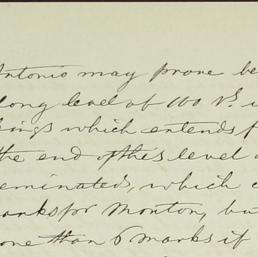 Antonio may prove be
long level of 100 Vs. i
kings which extends f
the end of this level a
eminated, which c
anks for Monton, bu
one than 6 marks if